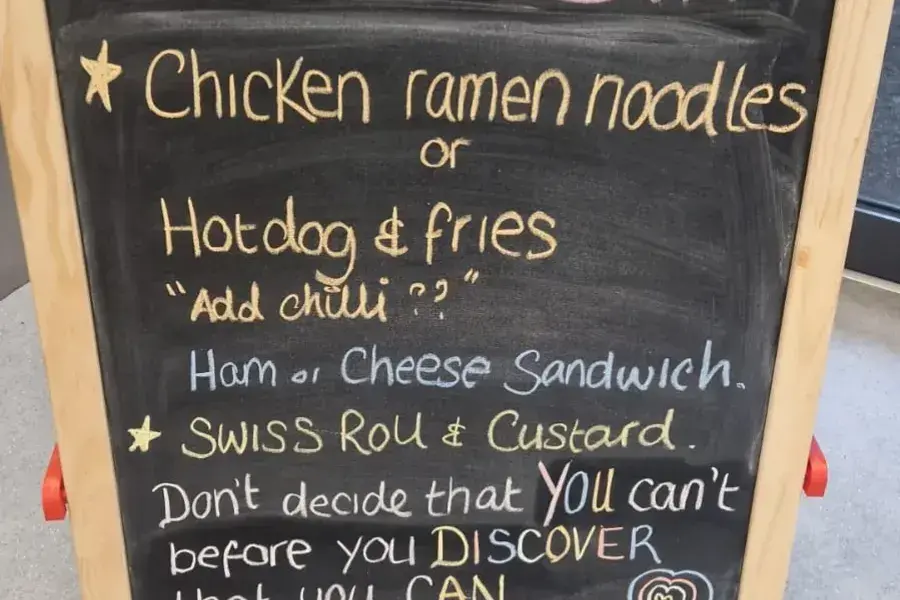 Chicken ramen noodles
or
Hotdog & fries
"Add chilli ??"
Ham or Cheese Sandwich.
Swiss Roll & Custard.
Don't decide that YOU can't
before you DISCOVER
that you CAN